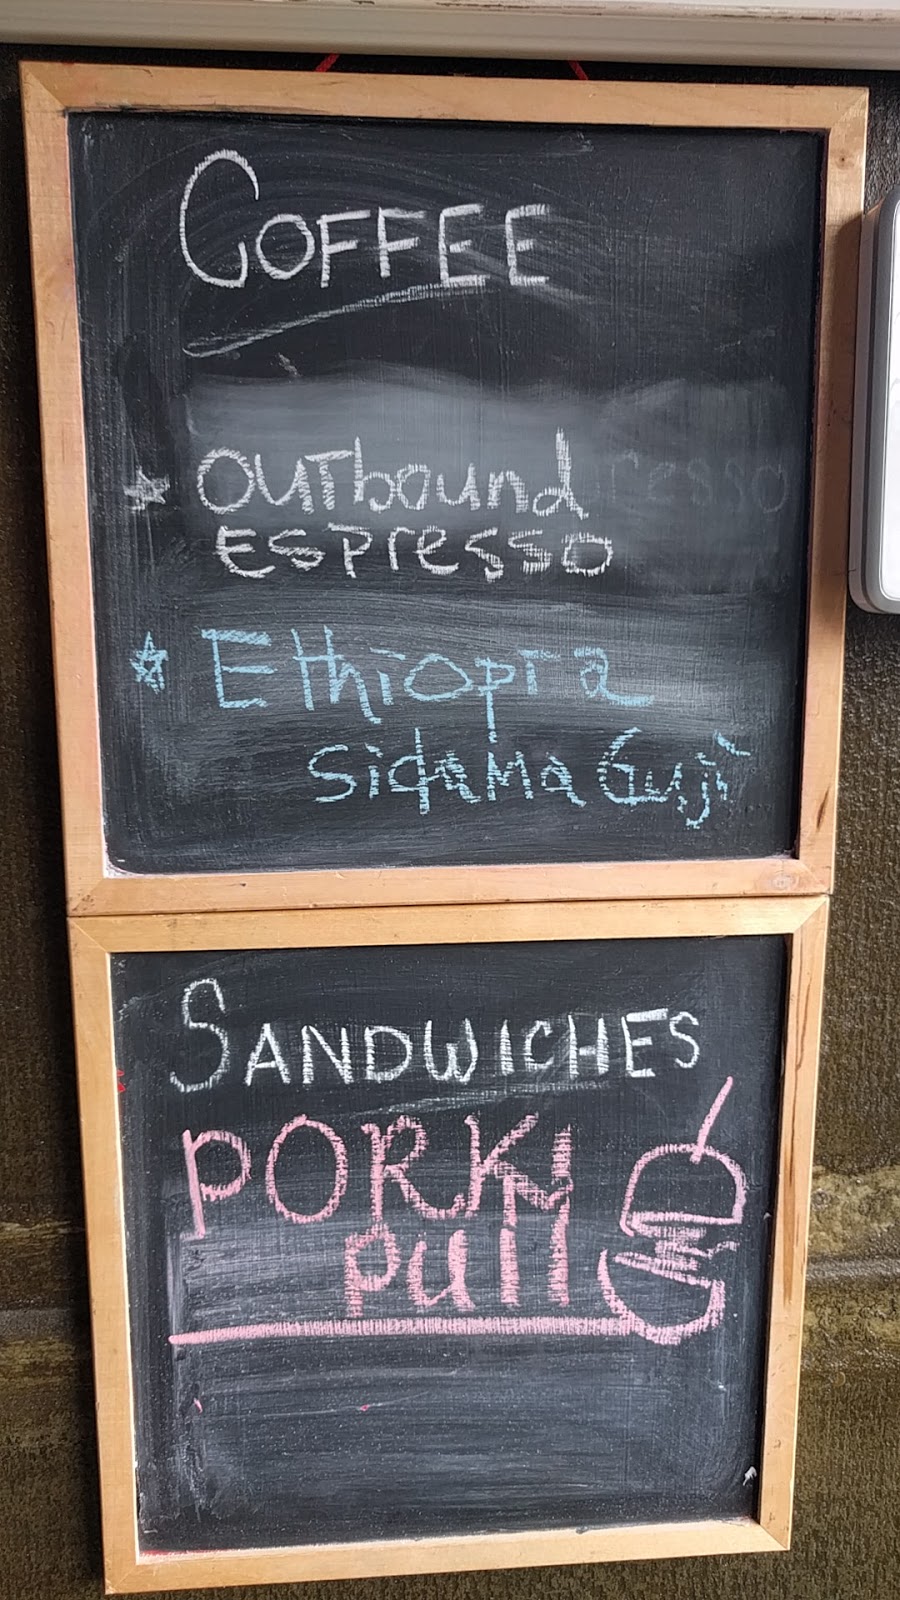 COFFEE
OUTbound
Espresso
Ethiopia
SidaMa Guji
SANDWICHES
PORK
Pull